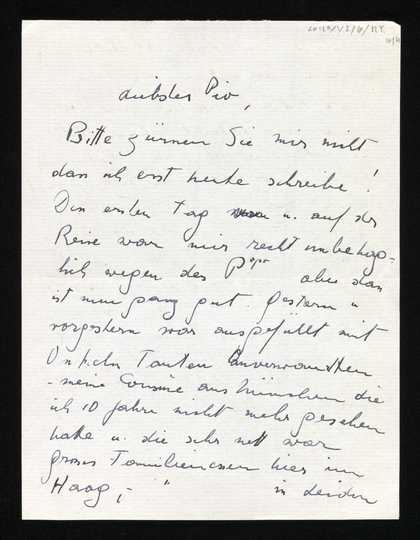 Liebster Pio,
Bitte zürnen Sie mir nicht
dass ich erst heute schreibe!
Den ersten Tag u. auf der
Reise war mir recht unbehag-
lich wegen des aber das
ist nun ganz gut. Gestern u
vorgestern war ausgefüllt mit
Onkeln Tanten Anverwandten
- meine Cousine aus München die
ich 10 Jahre nicht mehr gesehen
hatte u. die sehr nett war
grosses Familienessen hier im
Haag,- " in Leiden